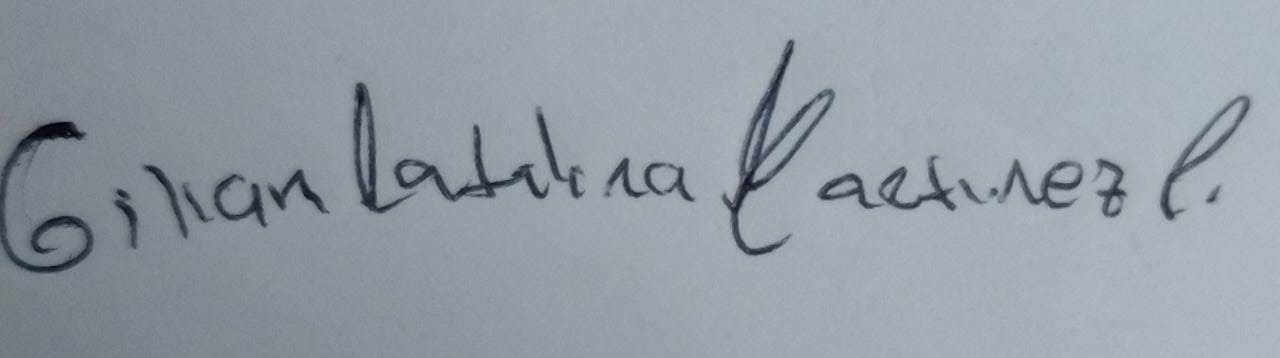 Gilian Catalina Martinez C.